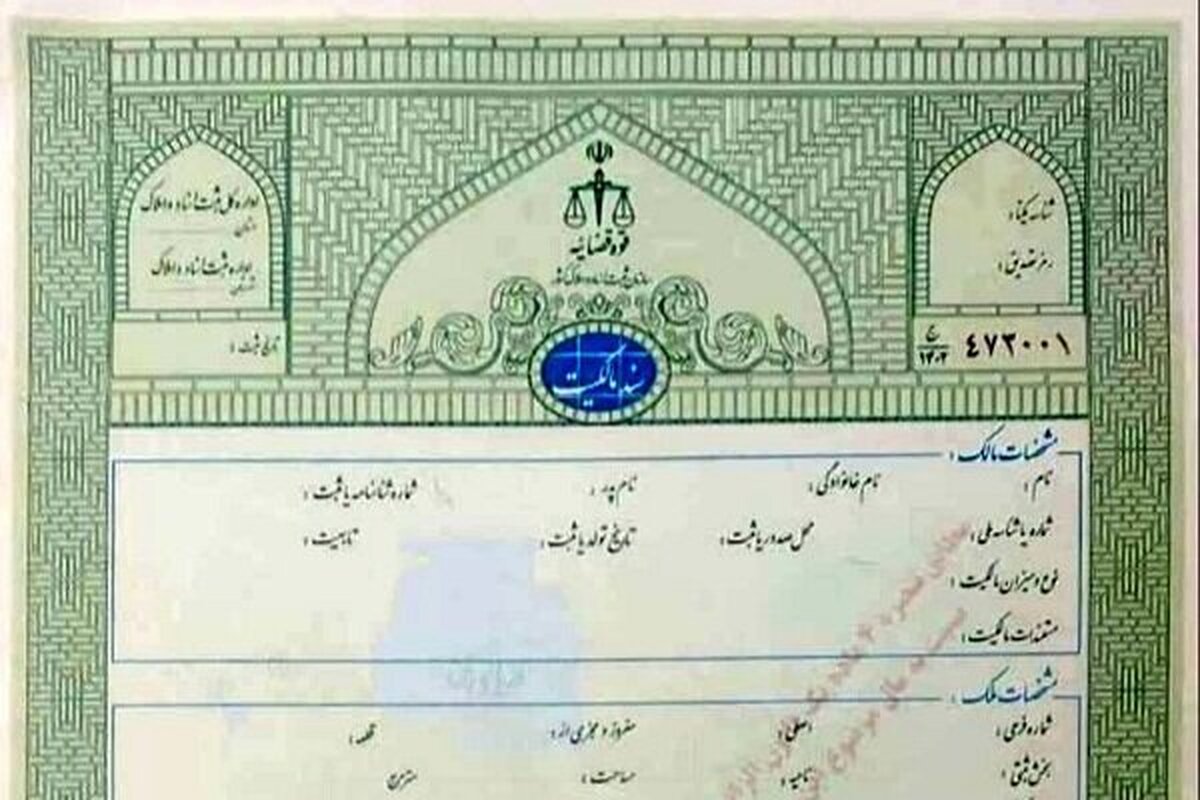 قوه قضائیه
سازمان ثبت اسناد و املاک کشور
سند مالکیت
شناسه یکتا :
رمز تصدیق :
۴۷۳۰۰۱ ج ۱۴۰۲
اداره کل ثبت اسناد و املاک
استان
اداره ثبت اسناد و املاک
تاریخ ثبت :
مشخصات مالک :
نام : نام خانوادگی : نام پدر : شماره شناسنامه یا ثبت :
شماره یا شناسه ملی : محل صدور یا ثبت : تاریخ تولد یا ثبت : تابعیت :
نوع و میزان مالکیت :
مستندات مالکیت :
مشخصات ملک :
شماره فرعی : اصلی : مفروز و مجزی از : قطعه :
بخش ثبتی : ناحیه : مساحت : مترمربع
مطابق تبصره ۴ ماده یک قانون الزام